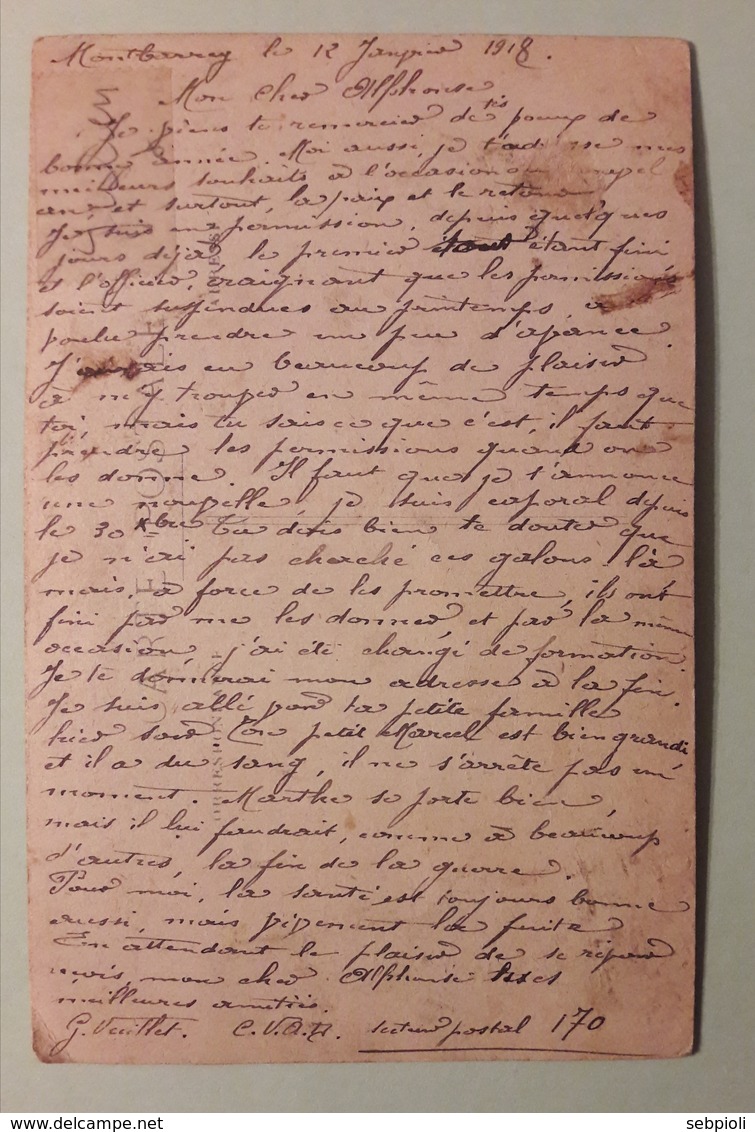 Montbarrey le 12 Janvier 1918.
Mon cher Alphonse.
Je viens te remercier de tes vœux de
bonne année. Moi aussi, je t'adresse mes
meilleurs souhaits à l'occasion du nouvel
an, et surtout, la paix et le retour
Je suis en permission, depuis quelques
jours déjà, le premier tour étant fini
et l'officier, craignant que les permissions
soient suspendues au printemps, a
voulu prendre un peu d'avance.
J'aurais eu beaucoup de plaisir
à m'y trouver en même temps que
toi, mais tu sais ce que c'est, il faut
prendre les permissions quand on
les donne. Il faut que je t'annonce
une nouvelle, je suis caporal depuis
le 30 Xbre Tu dois bien te douter que
je n'ai pas cherché ces galons là
mais, à force de les promettre, ils ont
fini par me les donner, et par la même
occasion j'ai été changé de formation.
Je te donnerai mon adresse à la fin.
Je suis allé voir ta petite famille
hier soir Ton petit Marcel est bien grandi
et il a du sang, il ne s'arrête pas un
moment. Marthe se porte bien,
mais il lui faudrait, comme à beaucoup
d'autres, la fin de la guerre.
Pour moi, la santé est toujours bonne
aussi, mais vivement la fuite
En attendant le plaisir de se
revoir, mon cher Alphonse
meilleures amitiés.
G. Vuillet. C.V.A.D. secteur postal 170
CARTE POSTALE
CORRESPONDANCE
ADRESSE
sebpioli
delcampe.net